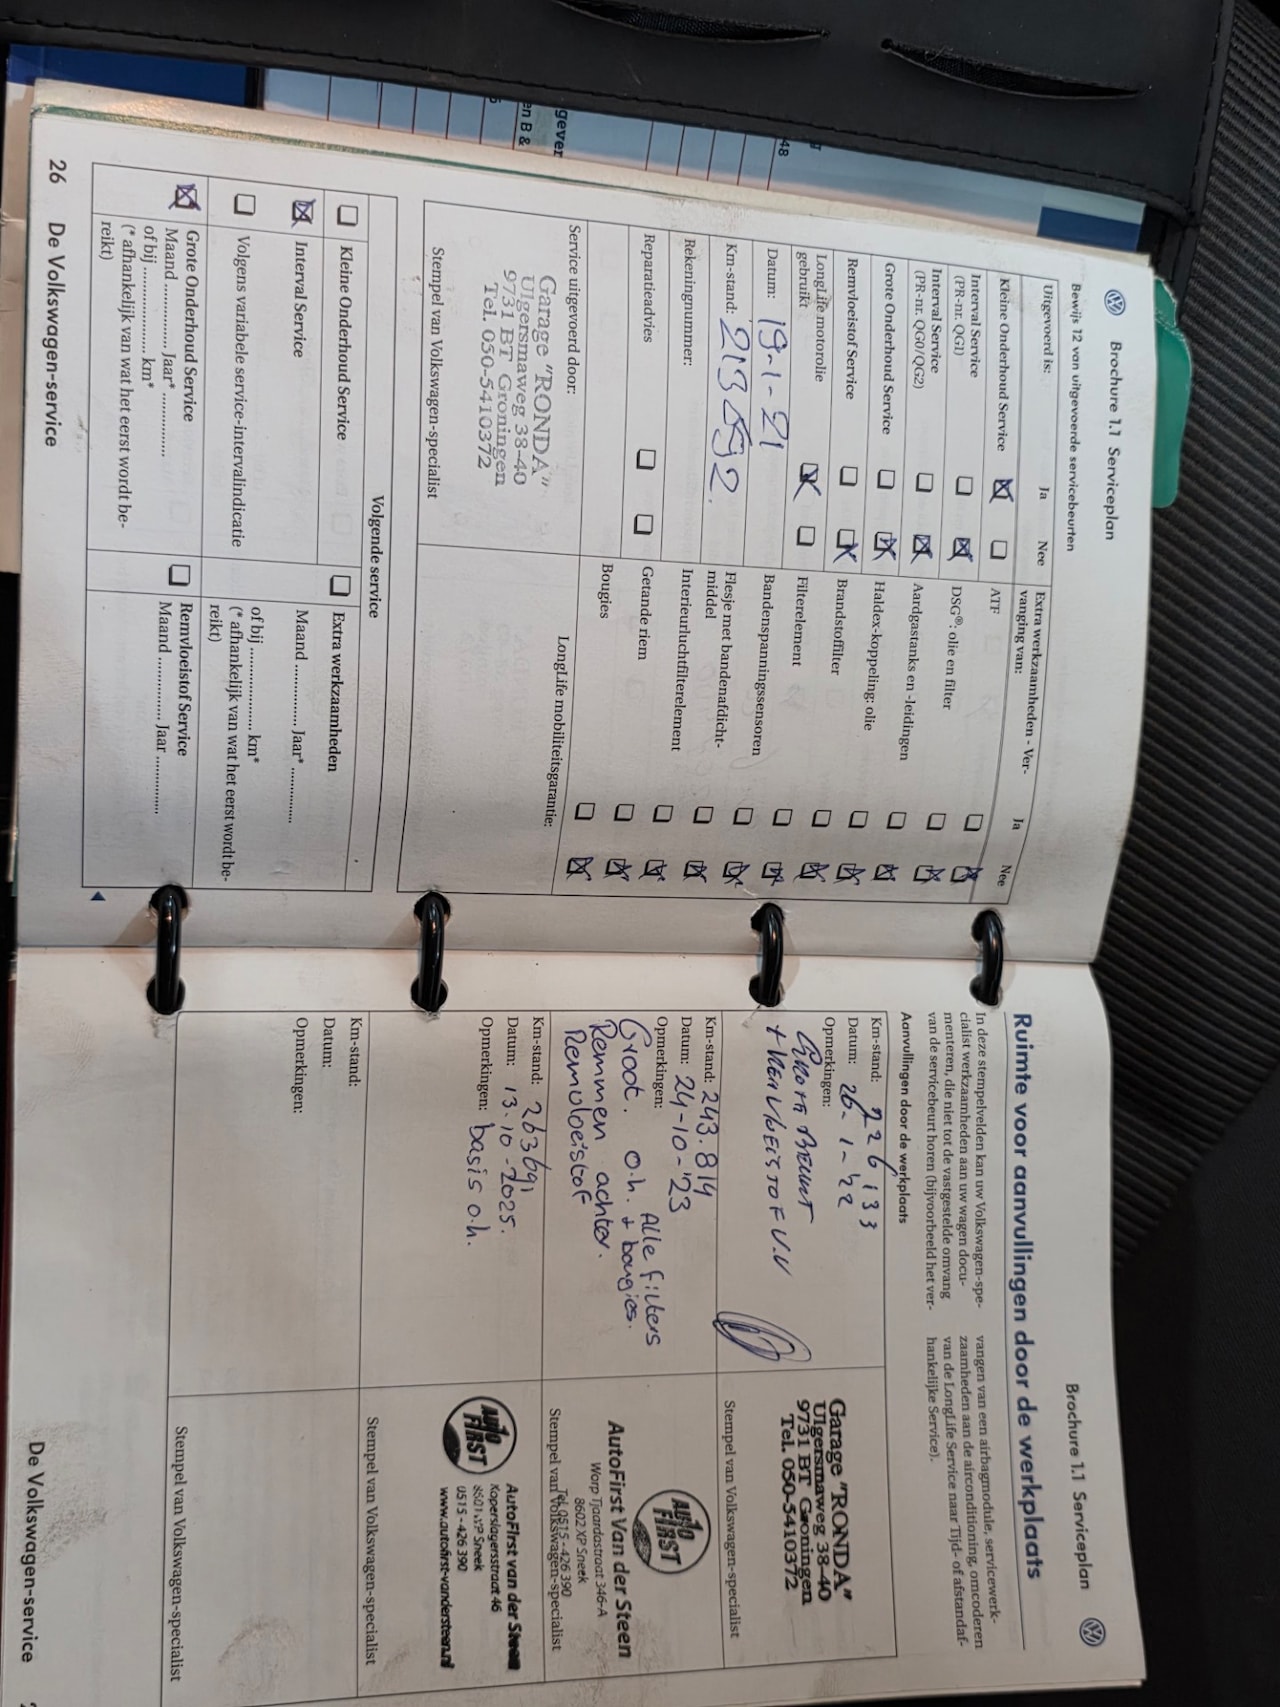 Brochure 1.1 Serviceplan
Bewijs 12 van uitgevoerde servicebeurten
Uitgevoerd is:
Ja
Nee
Extra werkzaamheden - Ver-
vanging van:
Ja
Nee
Kleine Onderhoud Service
ATF
Interval Service
(PR-nr. QG1)
DSG®: olie en filter
Interval Service
(PR-nr. QG0/QG2)
Aardgastanks en -leidingen
Grote Onderhoud Service
Haldex-koppeling: olie
Remvloeistof Service
Brandstoffilter
LongLife motorolie
gebruikt
Filterelement
Datum: 19-1-21
Bandenspanningssensoren
Km-stand:
Flesje met bandenafdicht-
middel
Rekeningnummer:
Interieurluchtfilterelement
Reparatieadvies
Getande riem
Bougies
Service uitgevoerd door:
LongLife mobiliteitsgarantie:
Garage "RONDA"
Ulgersmaweg 38-40
9731 BT Groningen
Tel. 050-5410372
Stempel van Volkswagen-specialist
Volgende service
Kleine Onderhoud Service
Extra werkzaamheden
Interval Service
Maand ............ Jaar* ............
of bij .................. km*
(* afhankelijk van wat het eerst wordt be-
reikt)
Volgens variabele service-intervalindicatie
Grote Onderhoud Service
Maand ............ Jaar* ............
of bij .................. km*
(* afhankelijk van wat het eerst wordt be-
reikt)
Remvloeistof Service
Maand ............ Jaar ............
26 De Volkswagen-service
Brochure 1.1 Serviceplan
Ruimte voor aanvullingen door de werkplaats
In deze stempelvelden kan uw Volkswagen-spe-
cialist werkzaamheden aan uw wagen docu-
menteren, die niet tot de vastgestelde omvang
van de servicebeurt horen (bijvoorbeeld het ver-
vangen van een airbagmodule, servicewerk-
zaamheden aan de airconditioning, omcoderen
van de LongLife Service naar Tijd- of afstandaf-
hankelijke Service).
Aanvullingen door de werkplaats
Km-stand: 226133
Datum: 26-1-'22
Opmerkingen:
GROTE BEURT
+ REMVLOEISTOF V.V
Garage "RONDA"
Ulgersmaweg 38-40
9731 BT Groningen
Tel. 050-5410372
Stempel van Volkswagen-specialist
Km-stand: 243.814
Datum: 24-10-'23
Opmerkingen: Alle filters
Groot. o.h. + bougies.
Remmen achter.
Remvloeistof
AUTO FIRST
AutoFirst Van der Steen
Worp Tjaardastraat 346-A
8602 XP Sneek
Tel. 0515 - 426 390
Stempel van Volkswagen-specialist
Km-stand: 263691
Datum: 13-10-2025.
Opmerkingen: basis o.h.
AUTO FIRST
AutoFirst van der Steen
Koperslagersstraat 46
8601 WP Sneek
0515 - 426 390
www.autofirst-vandersteen.nl
Stempel van Volkswagen-specialist
Km-stand:
Datum:
Opmerkingen:
Stempel van Volkswagen-specialist
De Volkswagen-service
gever
en B &
48